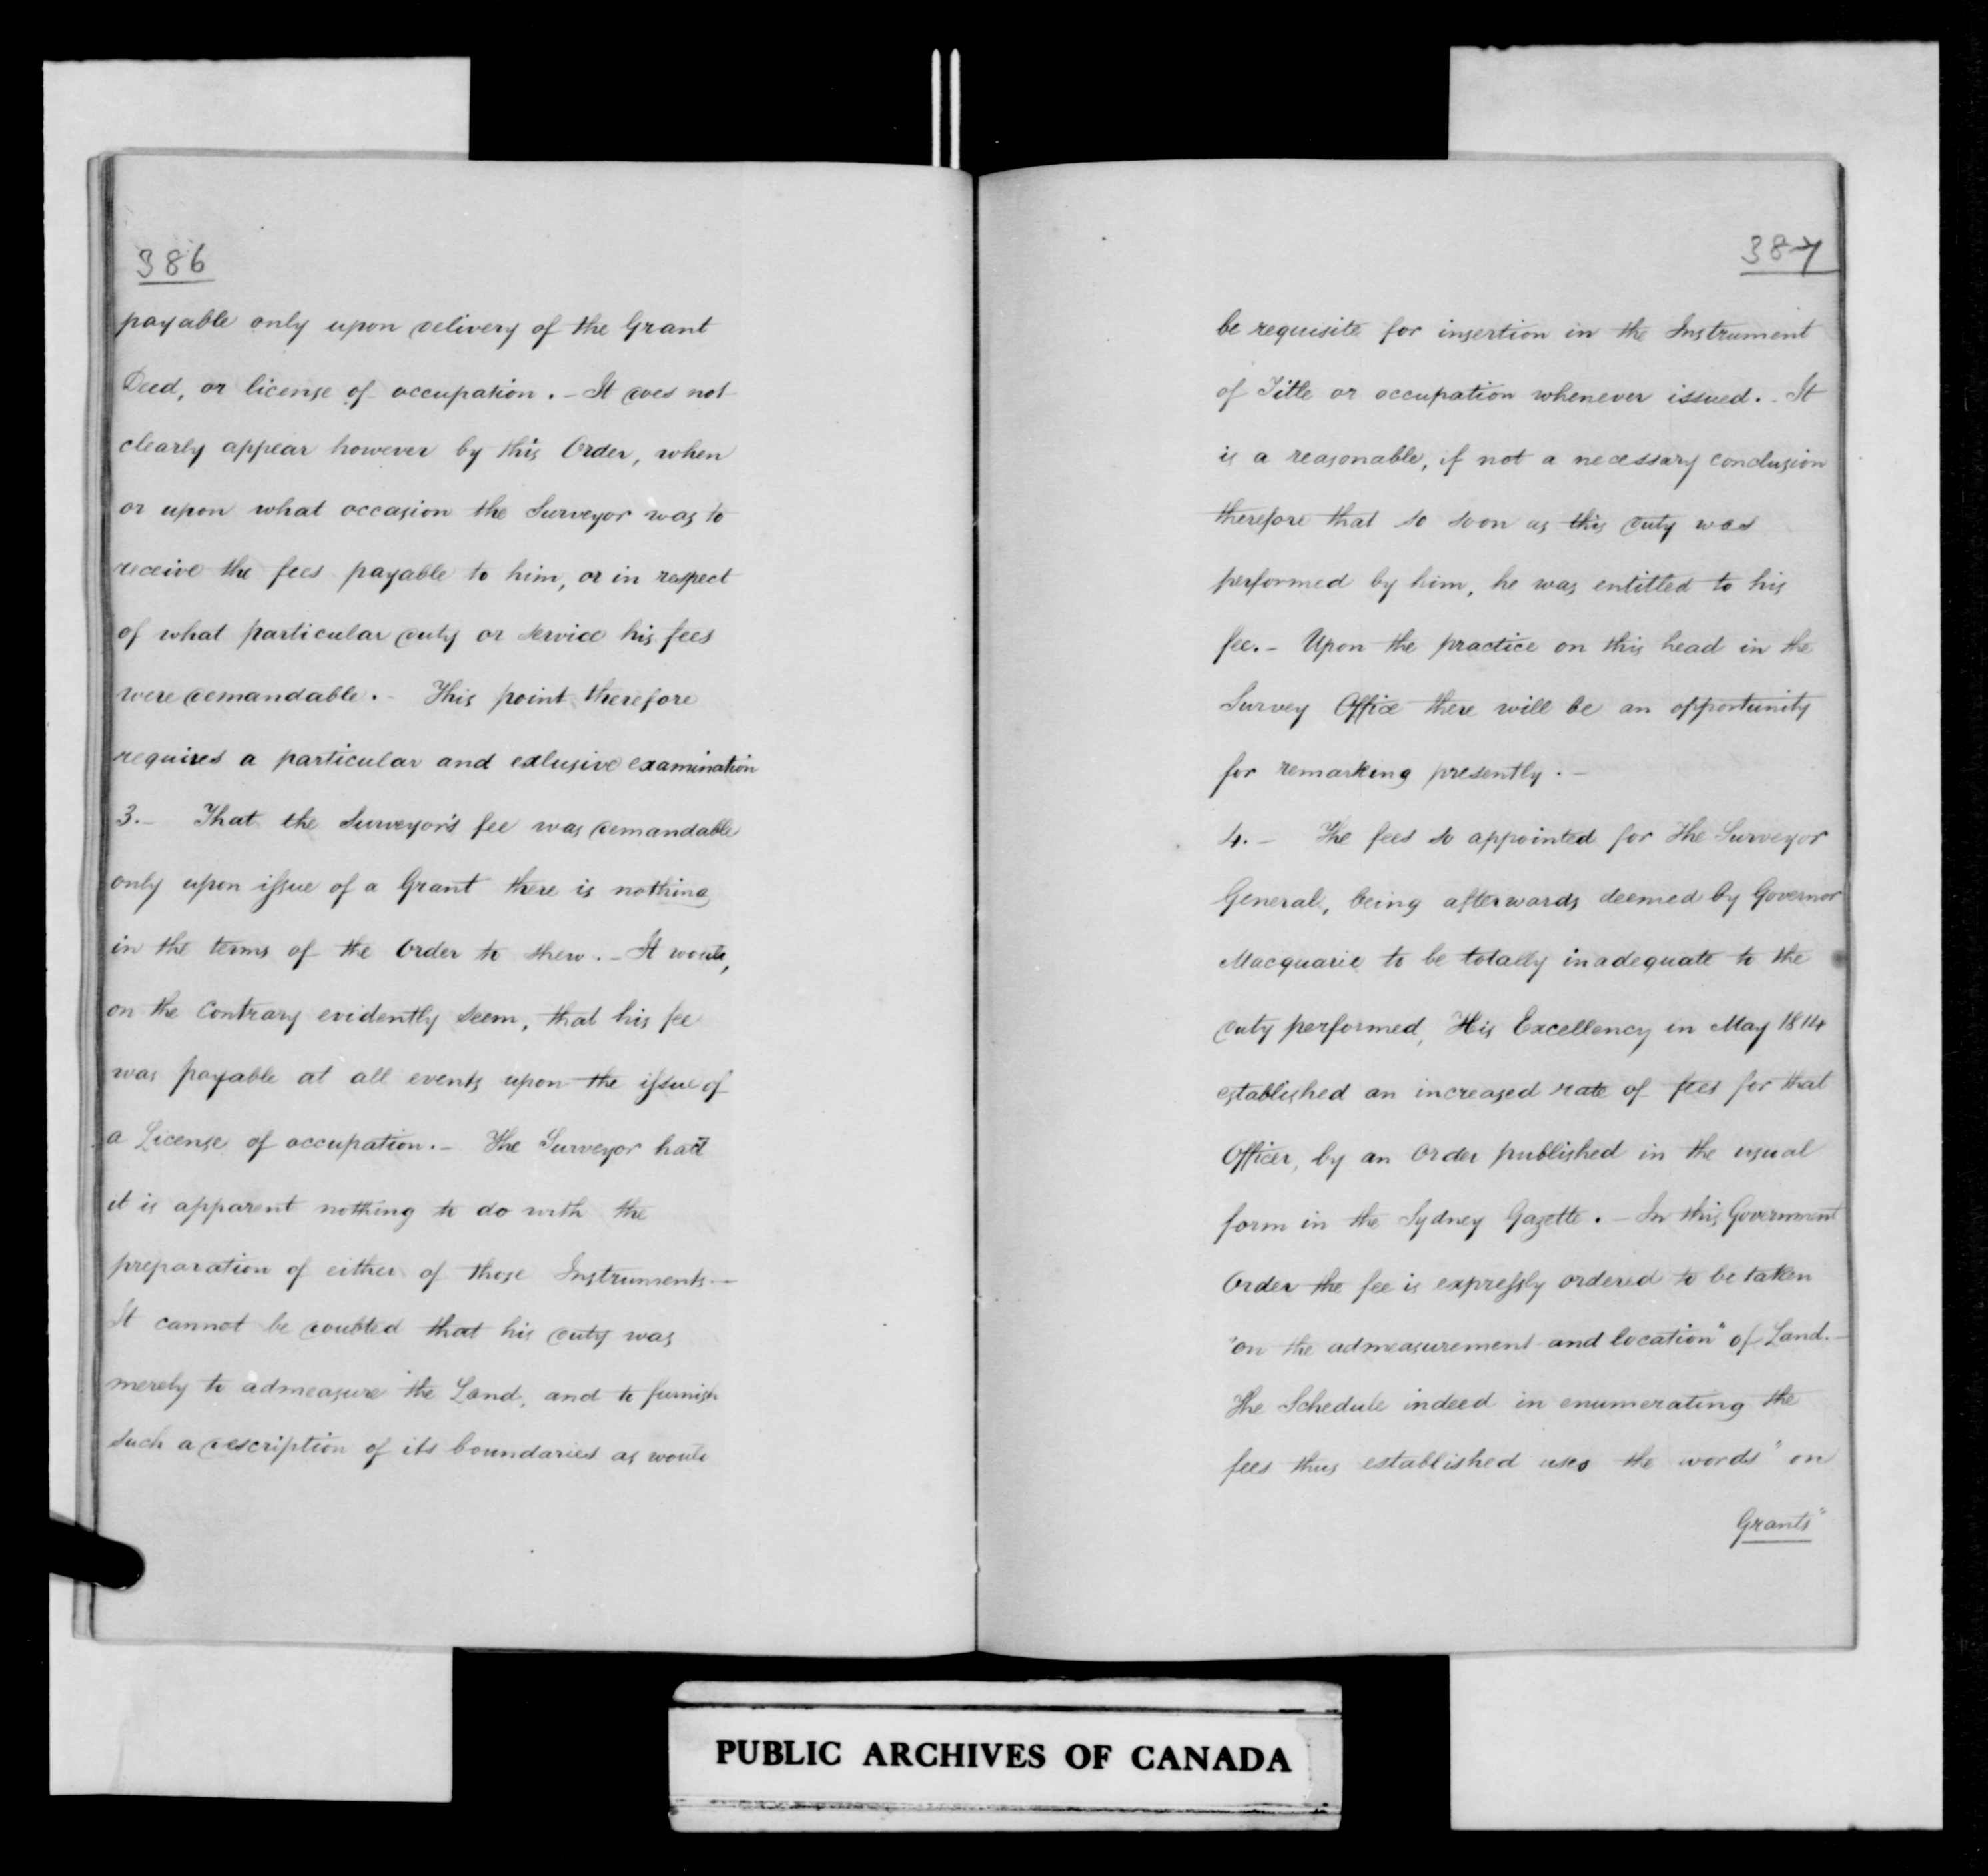 386
payable only upon delivery of the Grant
Deed, or license of occupation. - It does not
clearly appear however by this Order, when
or upon what occasion the Surveyor was to
receive the fees payable to him, or in respect
of what particular duty or service his fees
were demandable. - This point therefore
requires a particular and exlusive examination
3. - That the Surveyor's fee was demandable
only upon issue of a Grant there is nothing
in the terms of the Order to shew. - It would,
on the contrary evidently seem, that his fee
was payable at all events upon the issue of
a License of occupation. - The Surveyor had
it is apparent nothing to do with the
preparation of either of those Instruments -
It cannot be doubted that his duty was
merely to admeasure the Land, and to furnish
such a description of its boundaries as would
387
be requisite for insertion in the Instrument
of Title or occupation whenever issued. - It
is a reasonable, if not a necessary conclusion
therefore that so soon as this duty was
performed by him, he was entitled to his
fee. - Upon the practice on this head in the
Survey Office there will be an opportunity
for remarking presently. -
4. - The fees so appointed for the Surveyor
General, being afterwards deemed by Governor
Macquarie to be totally inadequate to the
duty performed, His Excellency in May 1814
established an increased rate of fees for that
Officer, by an Order published in the usual
form in the Sydney Gazette. - In this Government
Order the fee is expressly ordered to be taken
"on the admeasurement and location" of Land. -
The Schedule indeed in enumerating the
fees thus established uses the words "on
Grants"
PUBLIC ARCHIVES OF CANADA